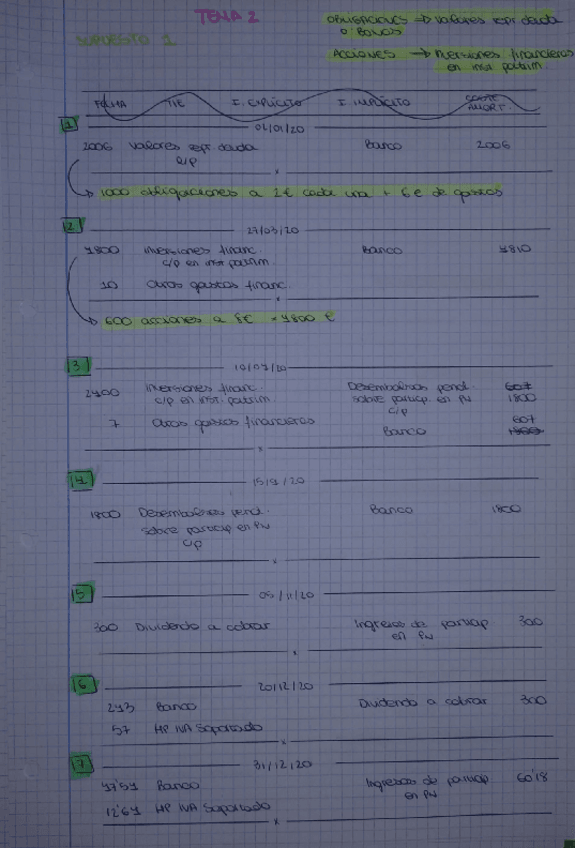 TEMA 2
OBLIGACIONES → Valores repr. deuda
O BONOS
SUPUESTO 1
ACCIONES → Inversiones financieras
en inst. patrim.
FECHA TIE I. EXPLÍCITO I. IMPLÍCITO COSTE AMORT.
1
01/01/20
2006 Valores repr. deuda Banco 2006
1000 obligaciones a 2€ cada una + 6€ de gastos
2
27/03/20
4800 Inversiones financ. Banco 4810
c/p en inst patrim.
10 Otros gastos financ.
600 acciones a 8€ = 4800 €
3
2400 Inversiones financ. Desembolsos pend. 607
c/p en inst. patrim. sobre particip. en PN 1800
c/p
7 Otros gastos financieros 607
Banco 1800
4
15/9/20
1800 Desembolsos pend. Banco 1800
sobre particip en PN
c/p
5
05/11/20
300 Dividendo a cobrar Ingresos de particip 300
en PN
6
20/12/20
243 Banco Dividendo a cobrar 300
57 HP IVA Soportado
7
31/12/20
Banco Ingresos de particip 60'18
en PN
HP IVA Soportado